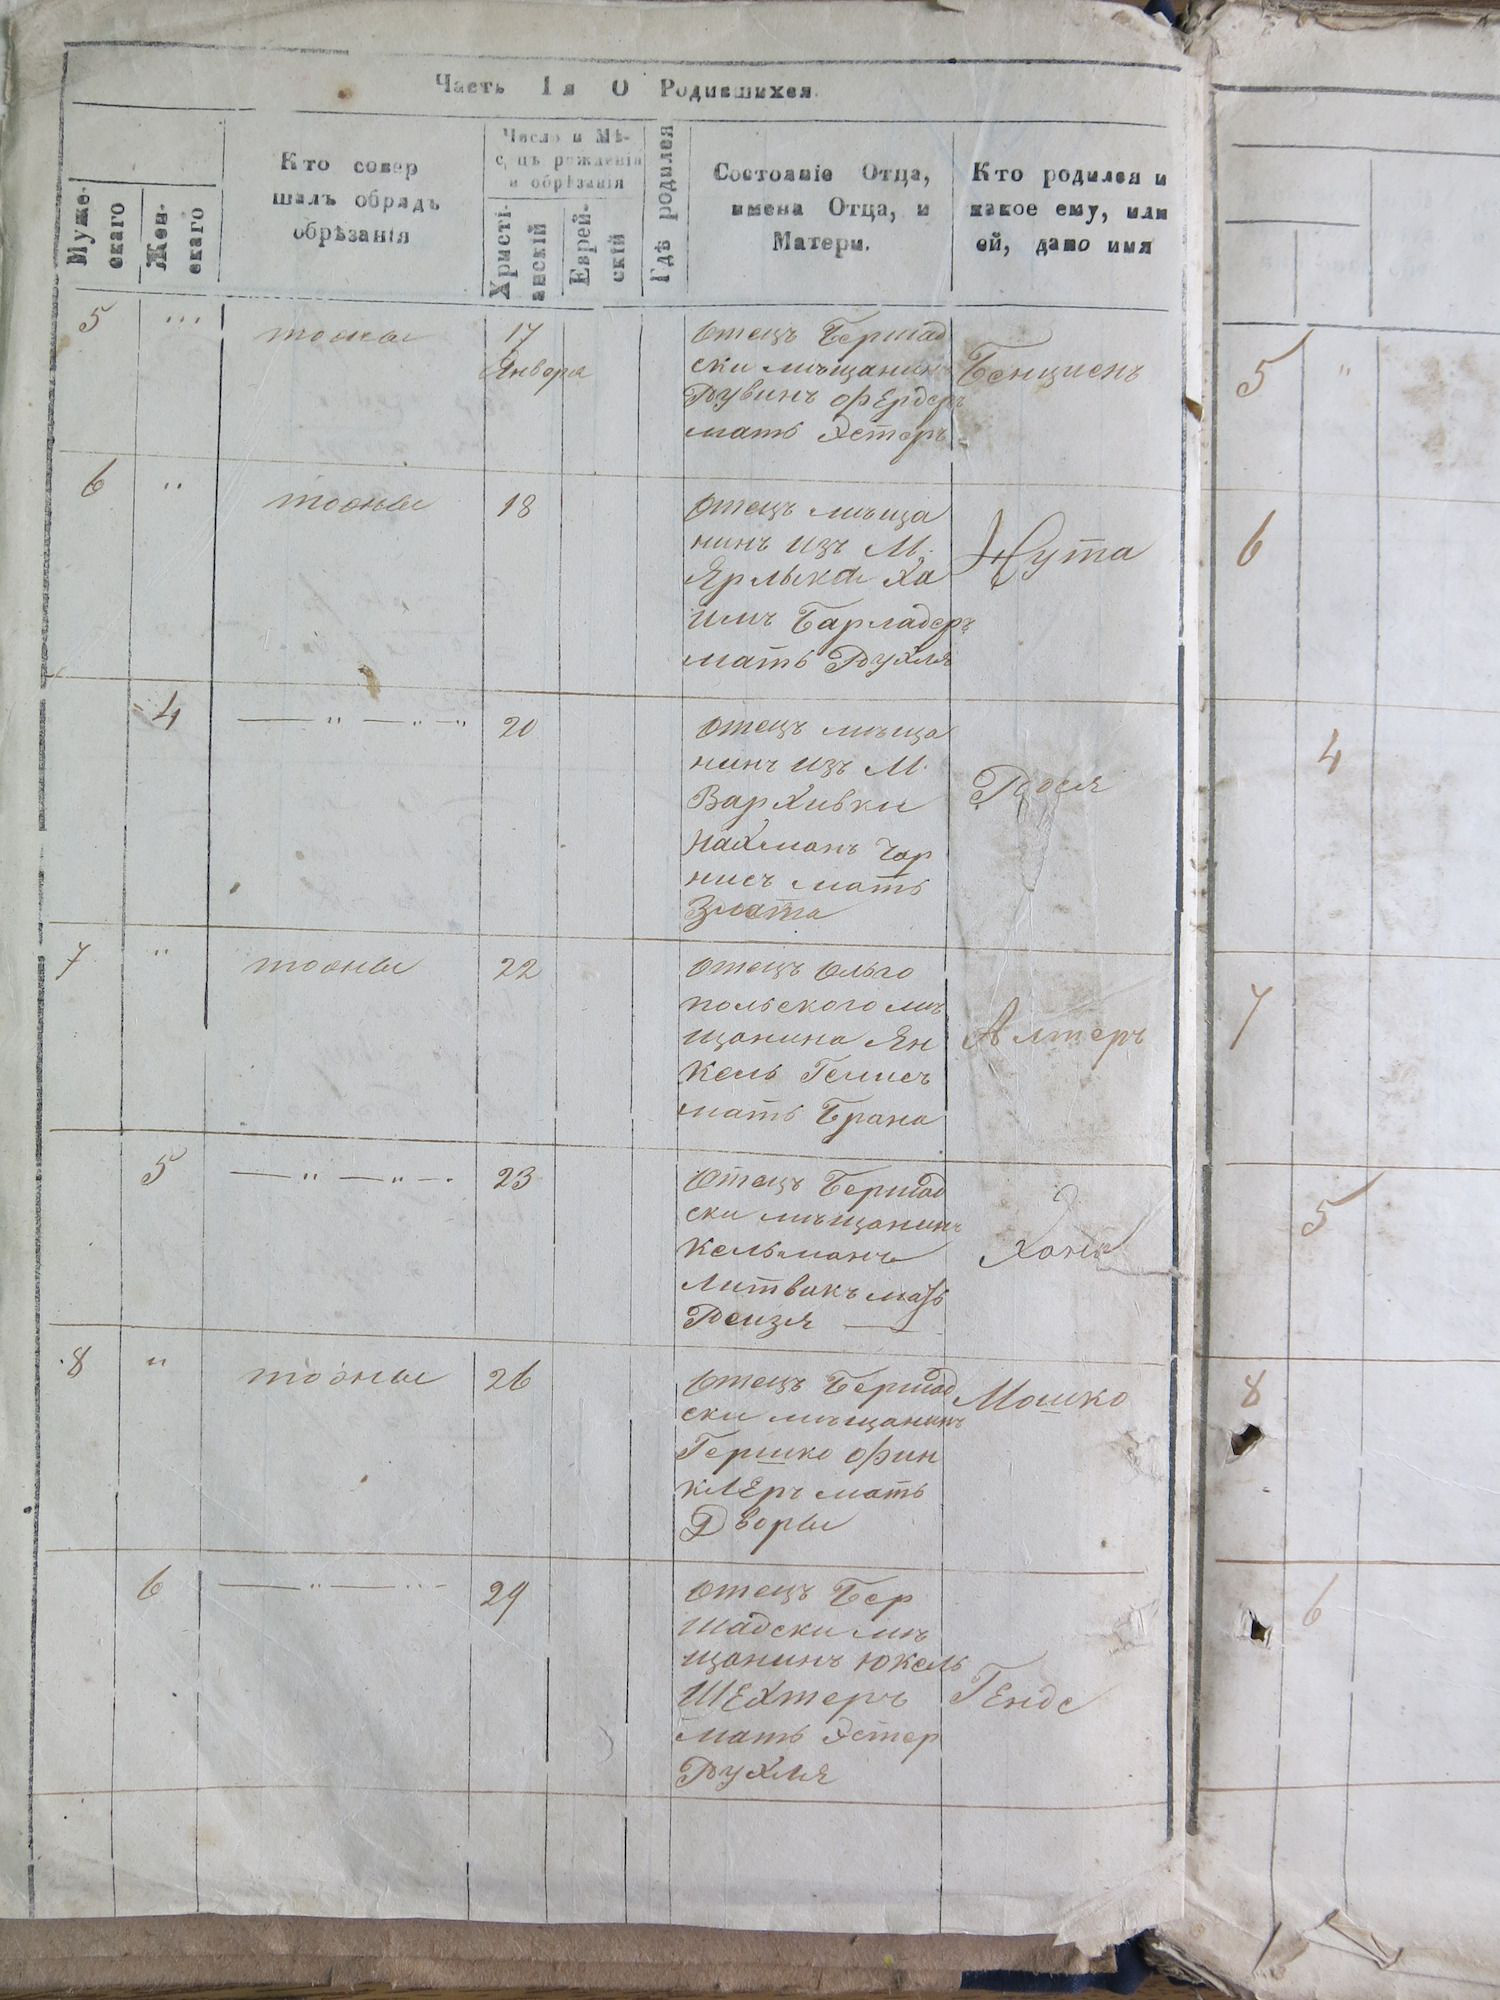 Часть 1я О Родившихся.
Муже-
скаго
Жен-
скаго
Кто совер
шалъ обрядъ
обрѣзанія
Число и Мѣ-
сяцъ рожденія
и обрѣзанія
Христі-
анскій
Еврей-
скій
Гдѣ родился
Состояніе Отца,
имена Отца, и
Матери.
Кто родился и
какое ему, или
ей, дано имя
5 ... 17
Января
Отецъ Бершад
ски мъщанинъ
Рувинъ Фердеръ
мать Эстеръ
Бенционъ
5 "
6 " 18
Отецъ мъща
нинъ изъ М.
Ярлыка Ха
имъ Барладеръ
мать Рухля
Нута
6
4 — " — " — " 20
Отецъ мъща
нинъ изъ М.
Вархивки
Нахманъ Чар
нисъ мать
Злота
Рося
4
7 " 22
Отецъ Ольго
польского мъ
щанина Ян
кель
мать Брана
Алтеръ
7
5 — " — " — . 23
Отецъ Бершад
ски мъщанинъ
Кельманъ
Литвакъ мать
Реизя —
Хона
5
8 " 26
Отецъ Бершад
ски мъщанинъ
Гершко Фин
клеръ мать
Дворы
Мошко
8
6 — " — " - 29
Отецъ Бер
шадски мъ
щанинъ Юкель
Шехтеръ
мать Эстер
Рухля
Генде
6